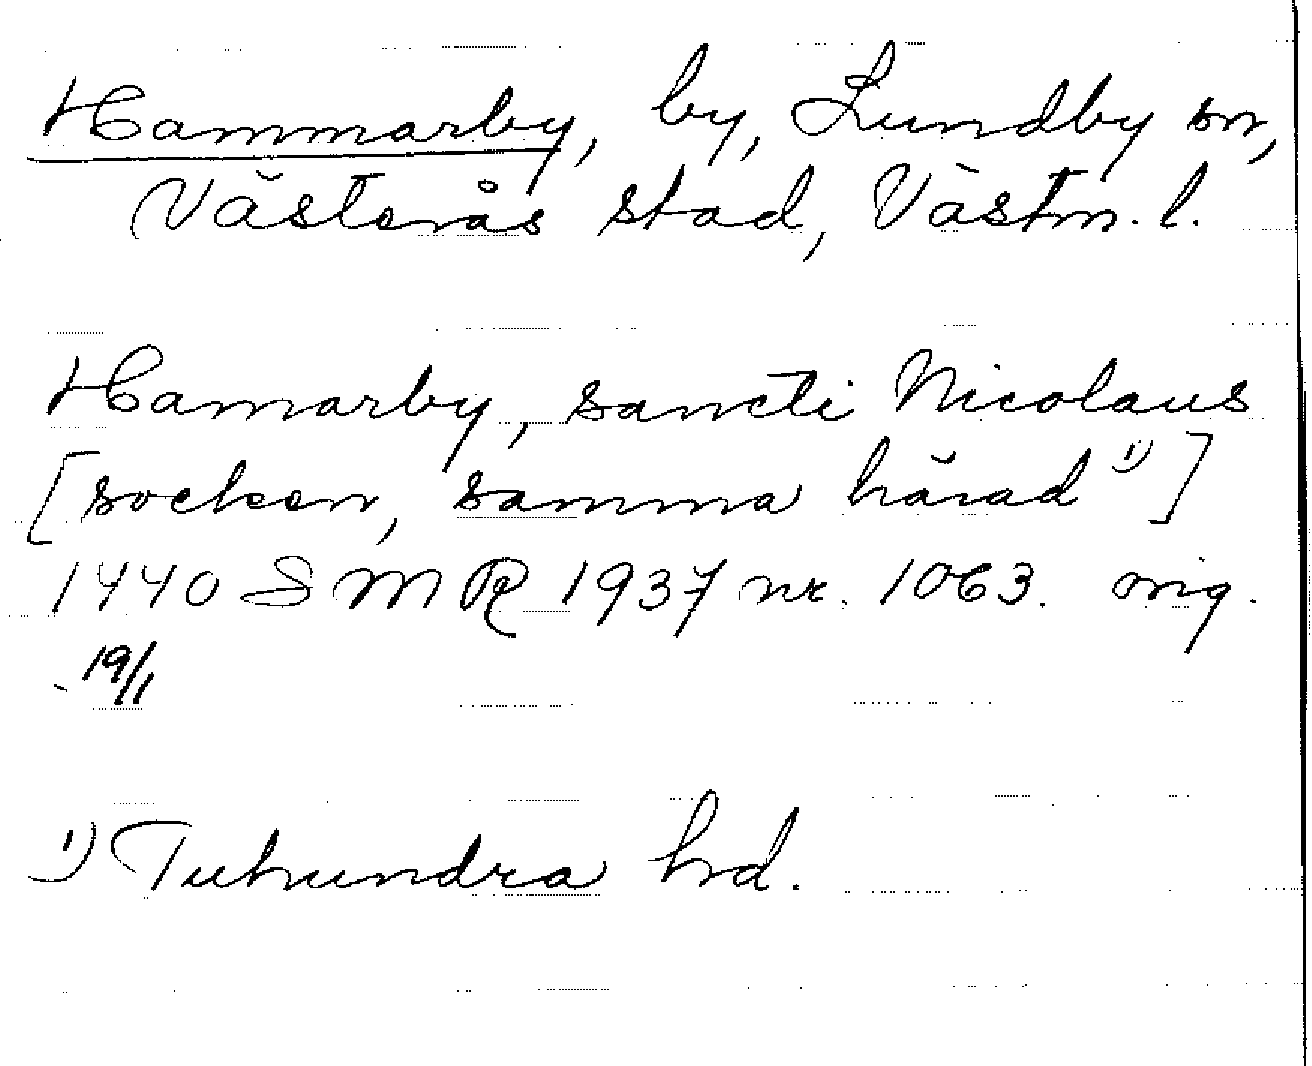 Hammarby, by, Lundby sn,
Västerås stad, Västm. l.
Hamarby, sancti Nicolaus
[socken, samma härad 1)]
1440 SMR 1937 nr. 1063. orig.
19/1
1) Tuhundra hd.